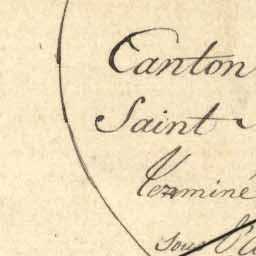 Canton
Saint
Terminé
Sous